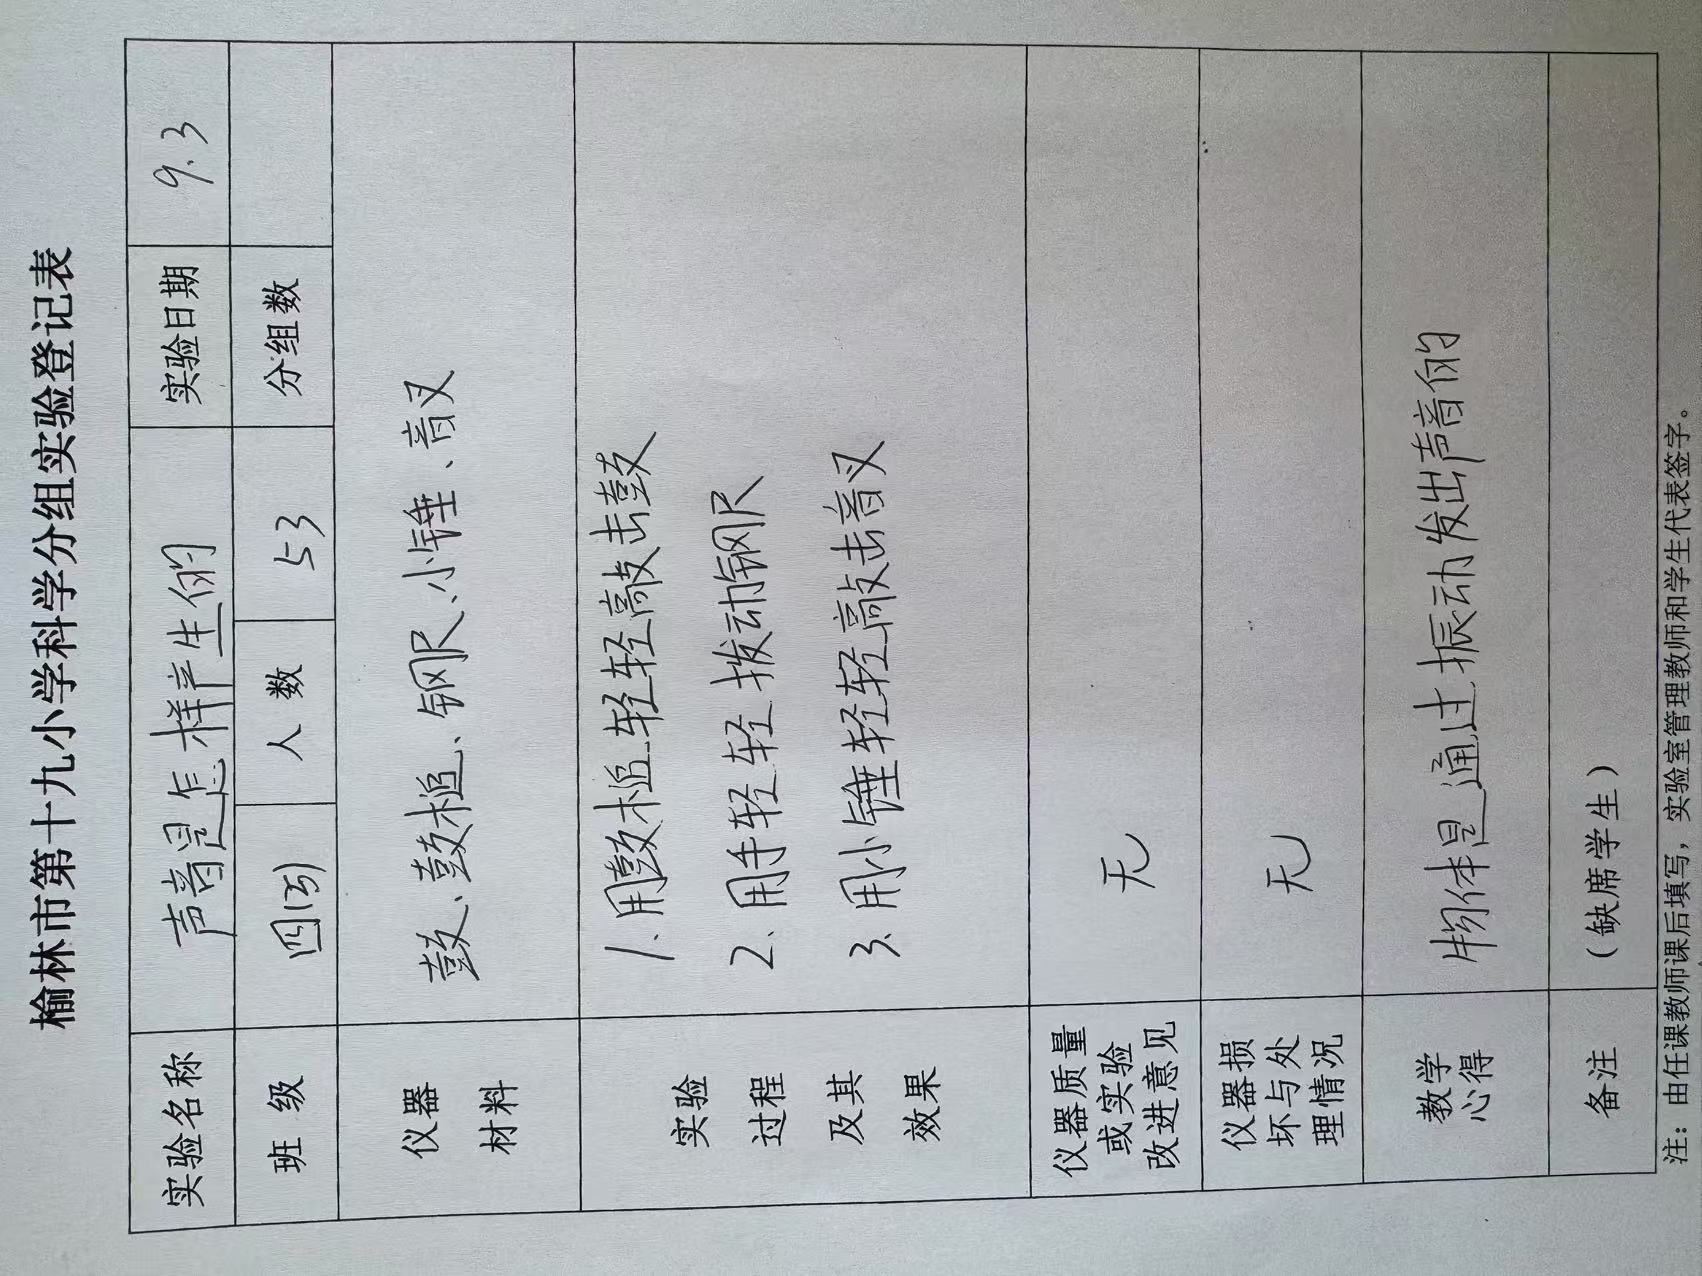 榆林市第十九小学科学分组实验登记表
实验名称 声音是怎样产生的 实验日期 9.3
班 级 四(5) 人 数 53 分组数
仪器
材料
鼓、鼓槌、钢尺、小锤、音叉
实验
过程
及其
效果
1、用鼓槌轻轻敲击鼓
2、用手轻轻拨动钢尺
3、用小锤轻轻敲击音叉
仪器质量
或实验
改进意见
无
仪器损
坏与处
理情况
无
教学
心得
物体是通过振动发出声音的
备注 (缺席学生)
注：由任课教师课后填写，实验室管理教师和学生代表签字。